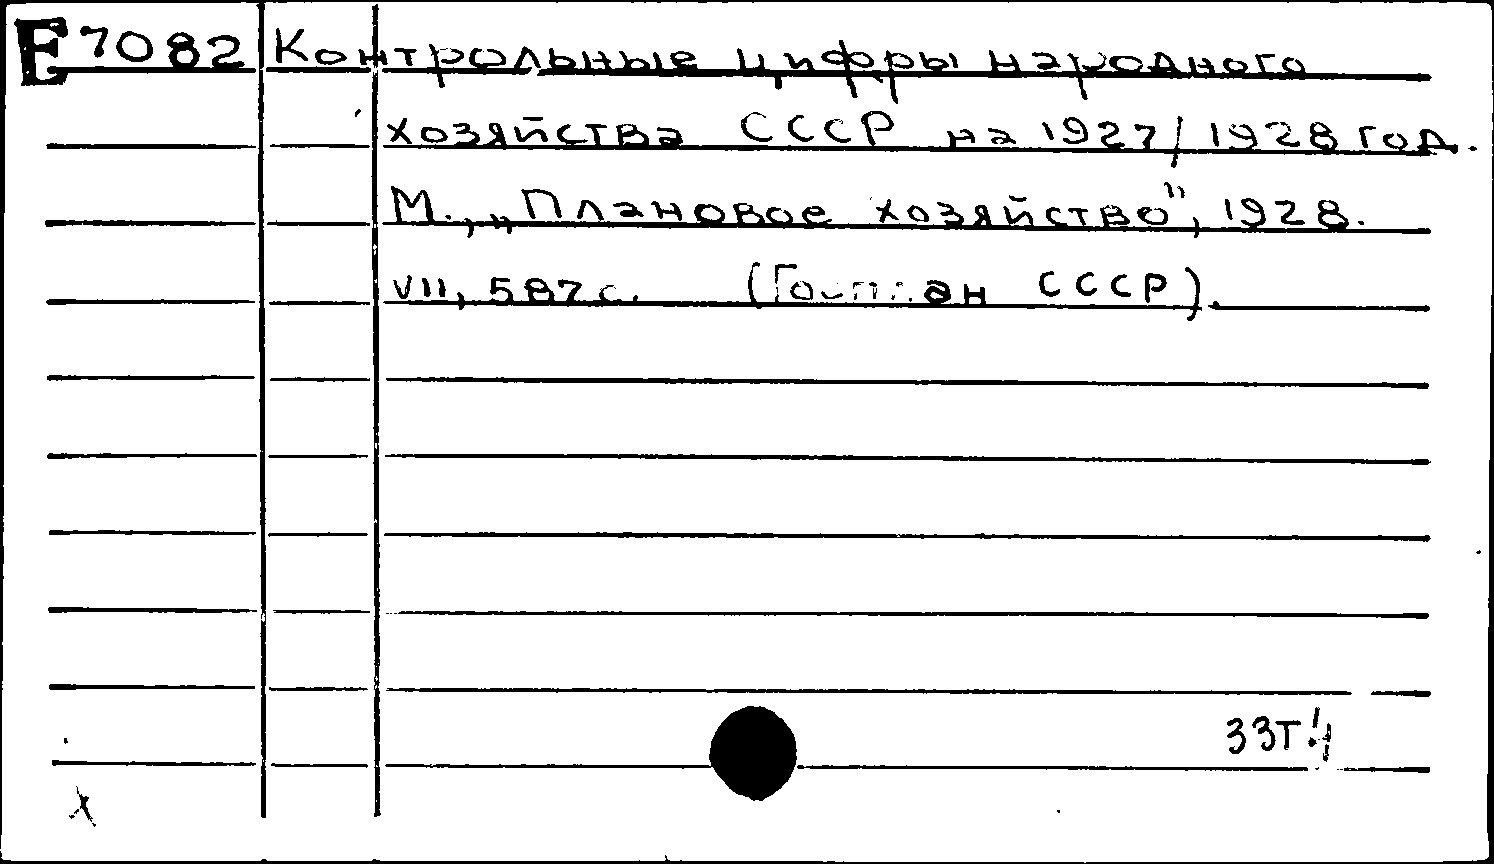 Е 7082 Контрольные цифры народного
хозяйства СССР на 1927/1928 год.
М., „Плановое хозяйство", 1928.
VII, 587 с. (Госплан СССР).